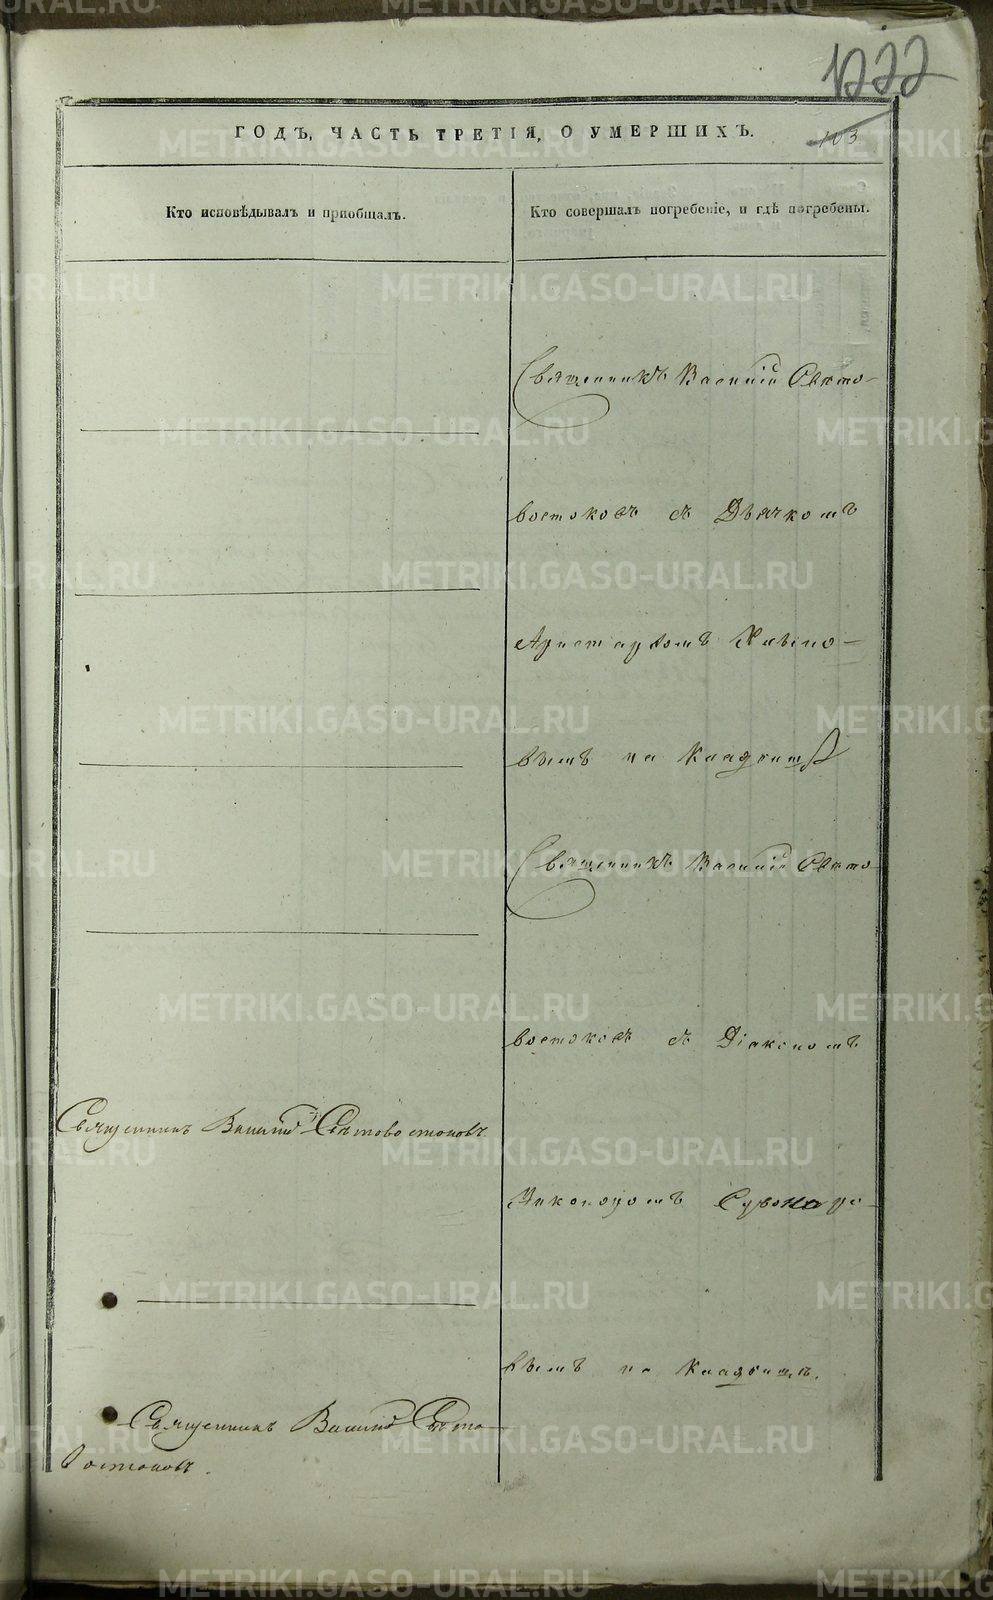 1222
ГОДЪ, ЧАСТЬ ТРЕТІЯ, О УМЕРШИХЪ.
103
Кто исповѣдывалъ и пріобщалъ.
Кто совершалъ погребеніе, и гдѣ погребены.
Священникъ Василій Свѣто-
востоковъ съ Дьячкомъ
Аристархомъ
вымъ на Кладбищѣ
Священникъ Василій Свѣто-
востоковъ съ Діакономъ
Никоноромъ
вымъ на Кладбищѣ.
Священникъ Василій Свѣтовостоковъ.
Священникъ Василій Свѣто-
востоковъ.
METRIKI.GASO-URAL.RU